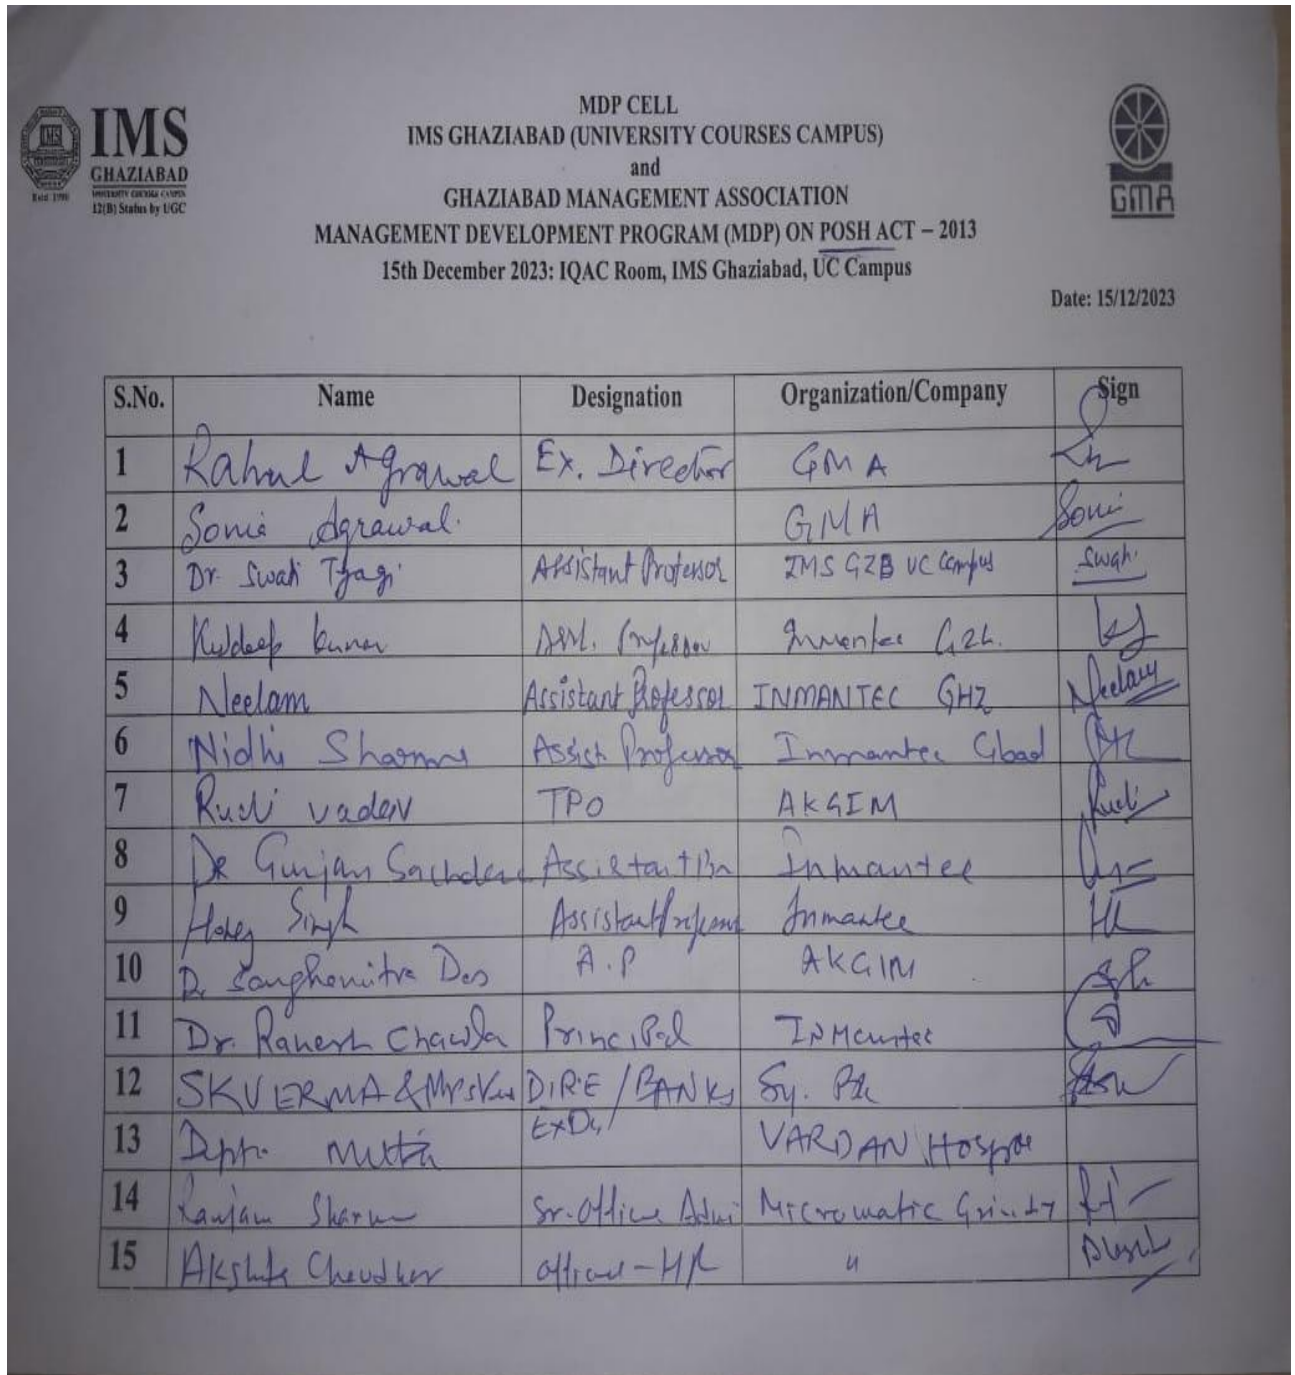 IMS
GHAZIABAD
UNIVERSITY COURSES CAMPUS
12(B) Status by UGC
Estd. 1990
GMA
MDP CELL
IMS GHAZIABAD (UNIVERSITY COURSES CAMPUS)
and
GHAZIABAD MANAGEMENT ASSOCIATION
MANAGEMENT DEVELOPMENT PROGRAM (MDP) ON POSH ACT – 2013
15th December 2023: IQAC Room, IMS Ghaziabad, UC Campus
Date: 15/12/2023
S.No. Name Designation Organization/Company Sign
1 Rahul Agrawal Ex. Director GMA
2 Sonia Agrawal. GMA Soni
3 Dr. Swati Tyagi Assistant Professor IMS GZB UC Campus Swati
4 Kuldeep Kumar Asst. Professor Inmantec Gzb.
5 Neelam Assistant Professor INMANTEC GHZ Neelam
6 Nidhi Sharma Assist Professor Inmantec Gbad
7 Ruchi Yadav TPO AKGIM Ruchi
8 Dr Gunjan Sachdeva Assistant Pr Inmantec
9 Singh Assistant Professor Inmantec
10 Dr Sanghamitra Das A.P AKGIM
11 Dr. Rakesh Chawla Principal INMantec
12 SKVERMA & Mrs DIRE/BANKS Sy.
13 ExDi VARDAN
14 Ranjan Sharma Sr. Officer Admi Micromatic
15 Officer-HR "